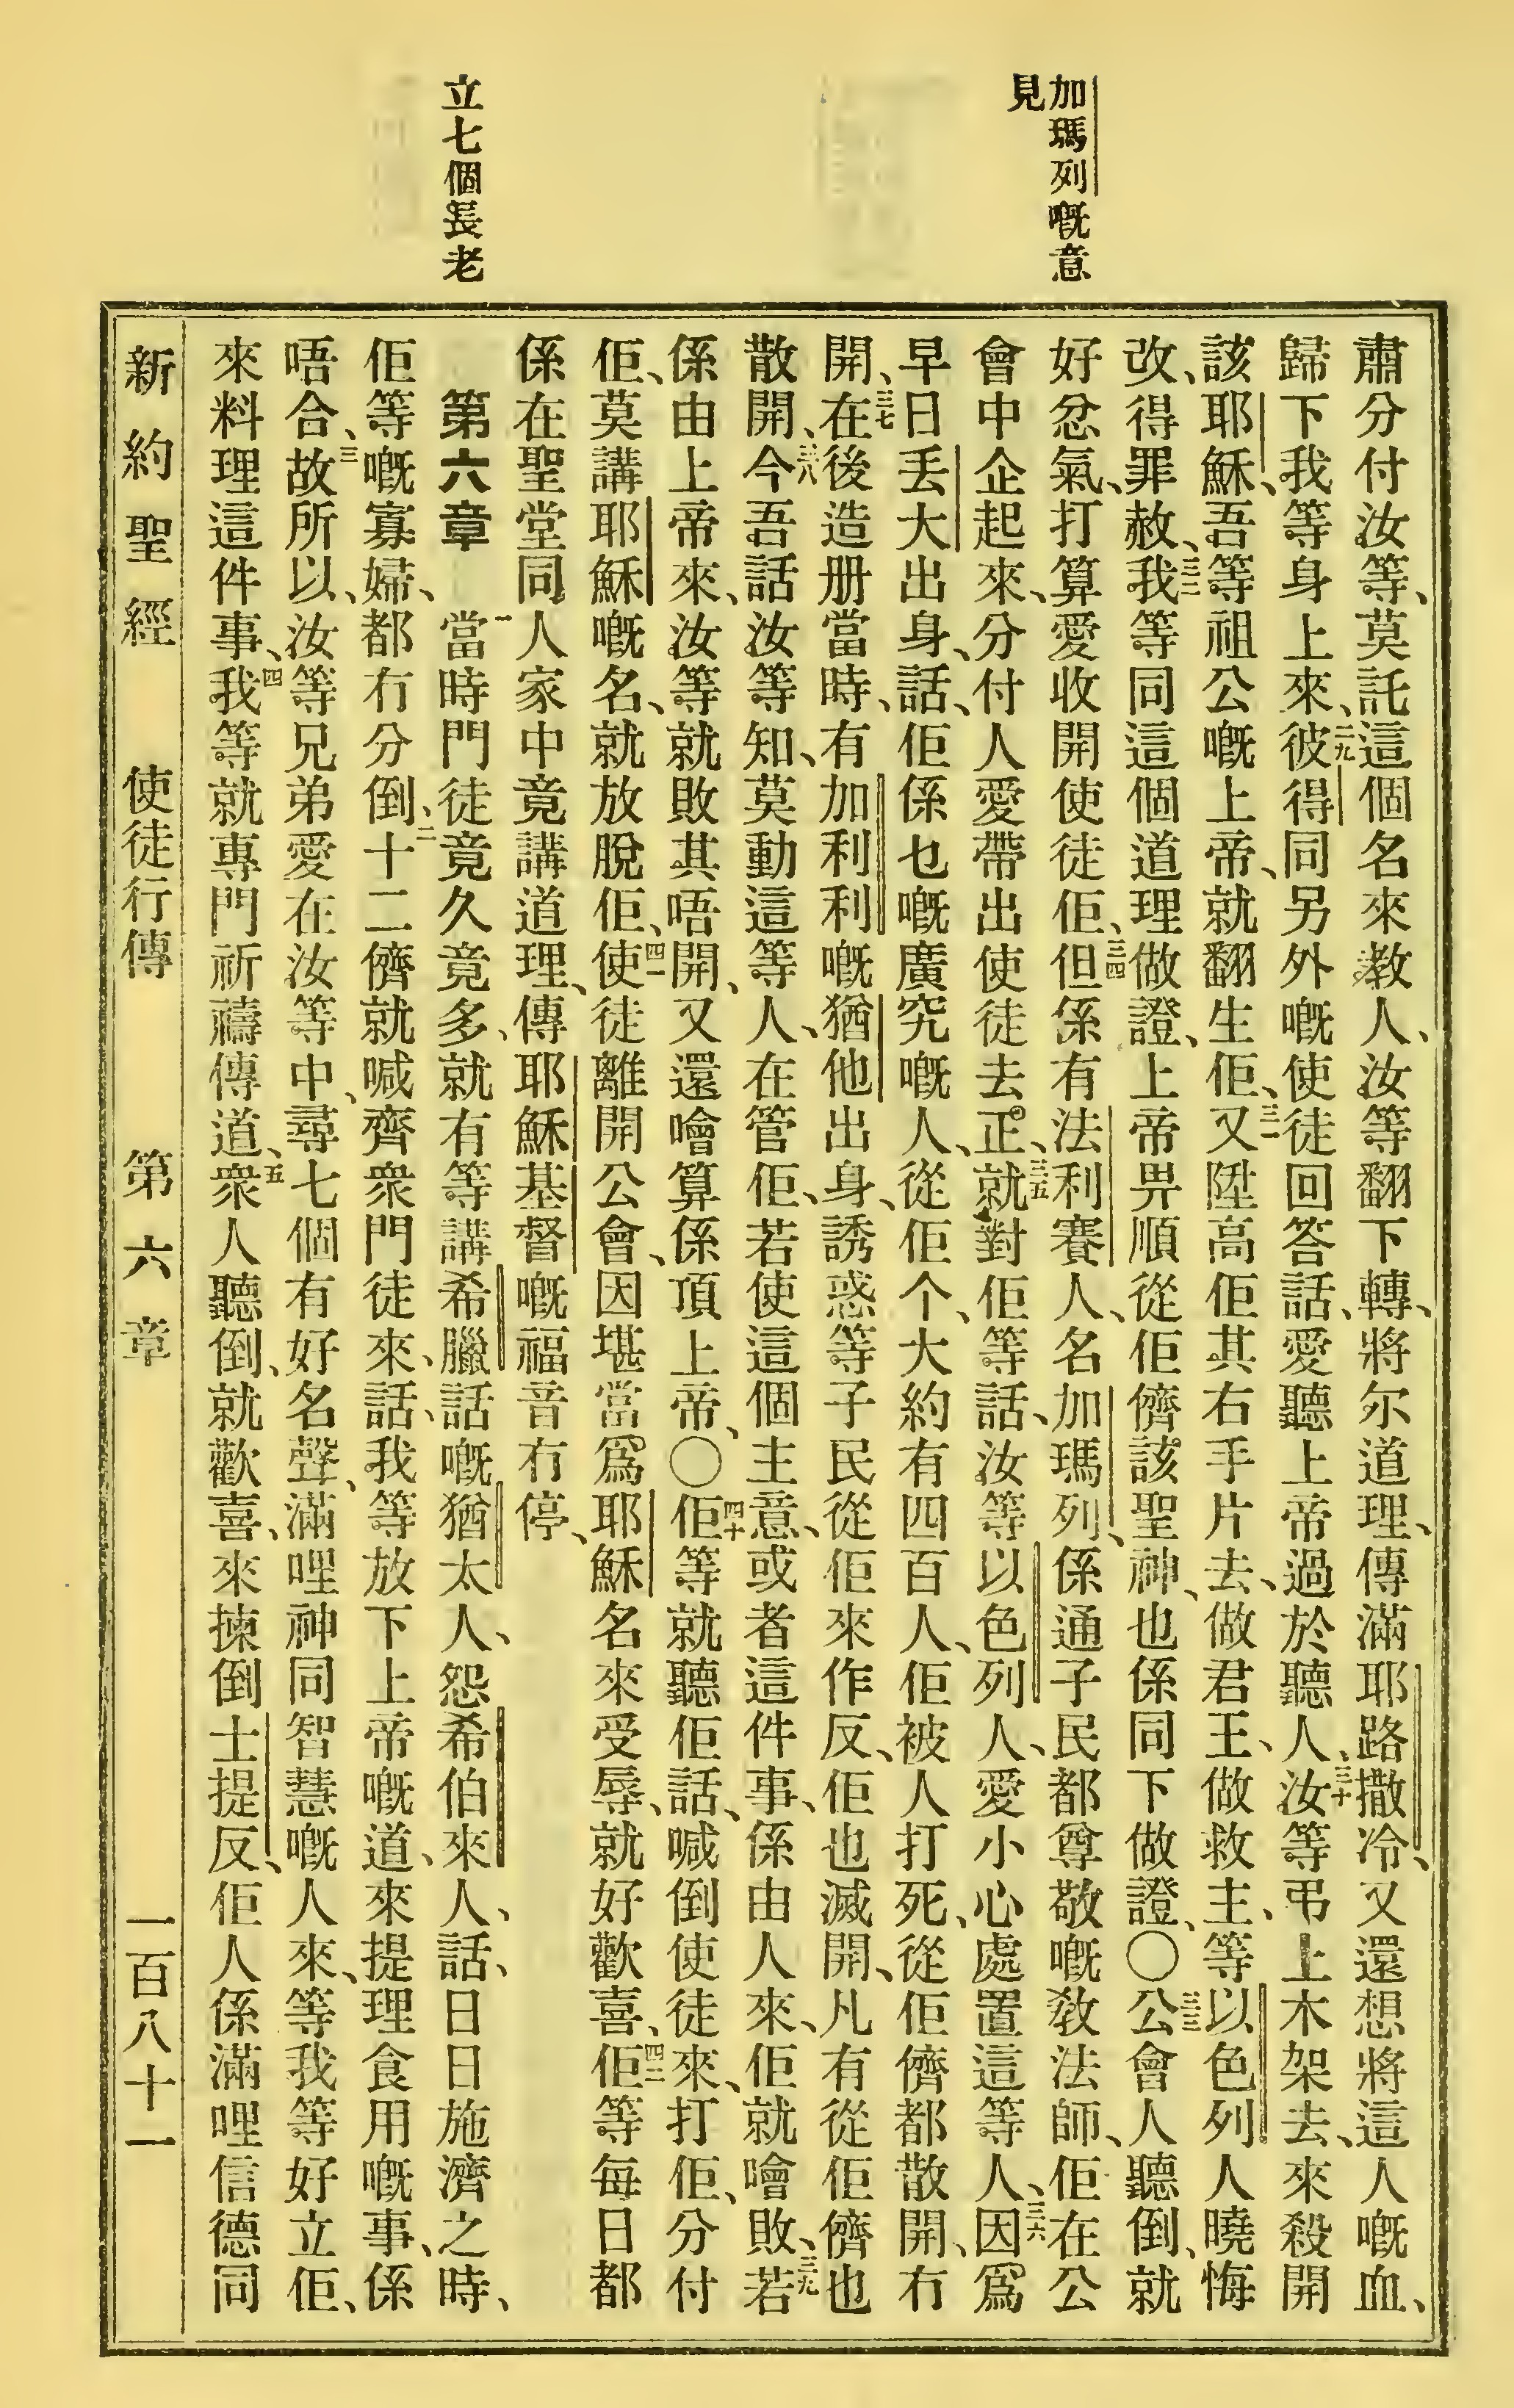 加瑪列嘅意
見
立七個長老
肅分付汝等、莫託這個名來教人、汝等翻下轉、將尔道理、傳滿耶路撒冷、又還想將這人嘅血、
歸下我等身上來、二九彼得同另外嘅使徒回答話、愛聽上帝過於聽人、三十汝等弔上木架去、來殺開
該耶穌、吾等祖公嘅上帝、就翻生佢、三一又陞高佢其右手片去、做君王、做救主、等以色列人曉悔
改、得罪赦、三二我等同這個道理做證、上帝畀順從佢儕該聖神、也係同下做證、〇三三公會人聽倒、就
好忿氣、打算愛收開使徒佢、三四但係有法利賽人、名加瑪列、係通子民都尊敬嘅教法師、佢在公
會中企起來、分付人愛帶出使徒去正、三五就對佢等話、汝等以色列人、愛小心處置這等人、三六因爲
早日丢大出身、話、佢係乜嘅廣究嘅人、從佢个、大約有四百人、佢被人打死、從佢儕都散開、冇
開、三七在後造册當時、有加利利嘅猶他出身、誘惑等子民從佢來作反、佢也滅開、凡有從佢儕也
散開、三八今吾話汝等知、莫動這等人、在管佢、若使這個主意、或者這件事、係由人來、佢就噲敗、三九若
係由上帝來、汝等就敗其唔開、又還噲算係頂上帝、〇四十佢等就聽佢話、喊倒使徒來、打佢、分付
佢、莫講耶穌嘅名、就放脫佢、四一使徒離開公會、因堪當爲耶穌名來受辱、就好歡喜、四二佢等每日都
係在聖堂同人家中竟講道理、傳耶穌基督嘅福音冇停、
第六章　一當時門徒竟久竟多、就有等講希臘話嘅猶太人、怨希伯來人、話、日日施濟之時、
佢等嘅寡婦、都冇分倒、二十二儕就喊齊衆門徒來、話、我等放下上帝嘅道、來提理食用嘅事、係
唔合、三故所以、汝等兄弟愛在汝等中、尋七個有好名聲、滿哩神同智慧嘅人來、等我等好立佢、
來料理這件事、四我等就專門祈禱傳道、五衆人聽倒、就歡喜、來揀倒士提反、佢人係滿哩信德同
新約聖經　使徒行傳　第六章　一百八十一